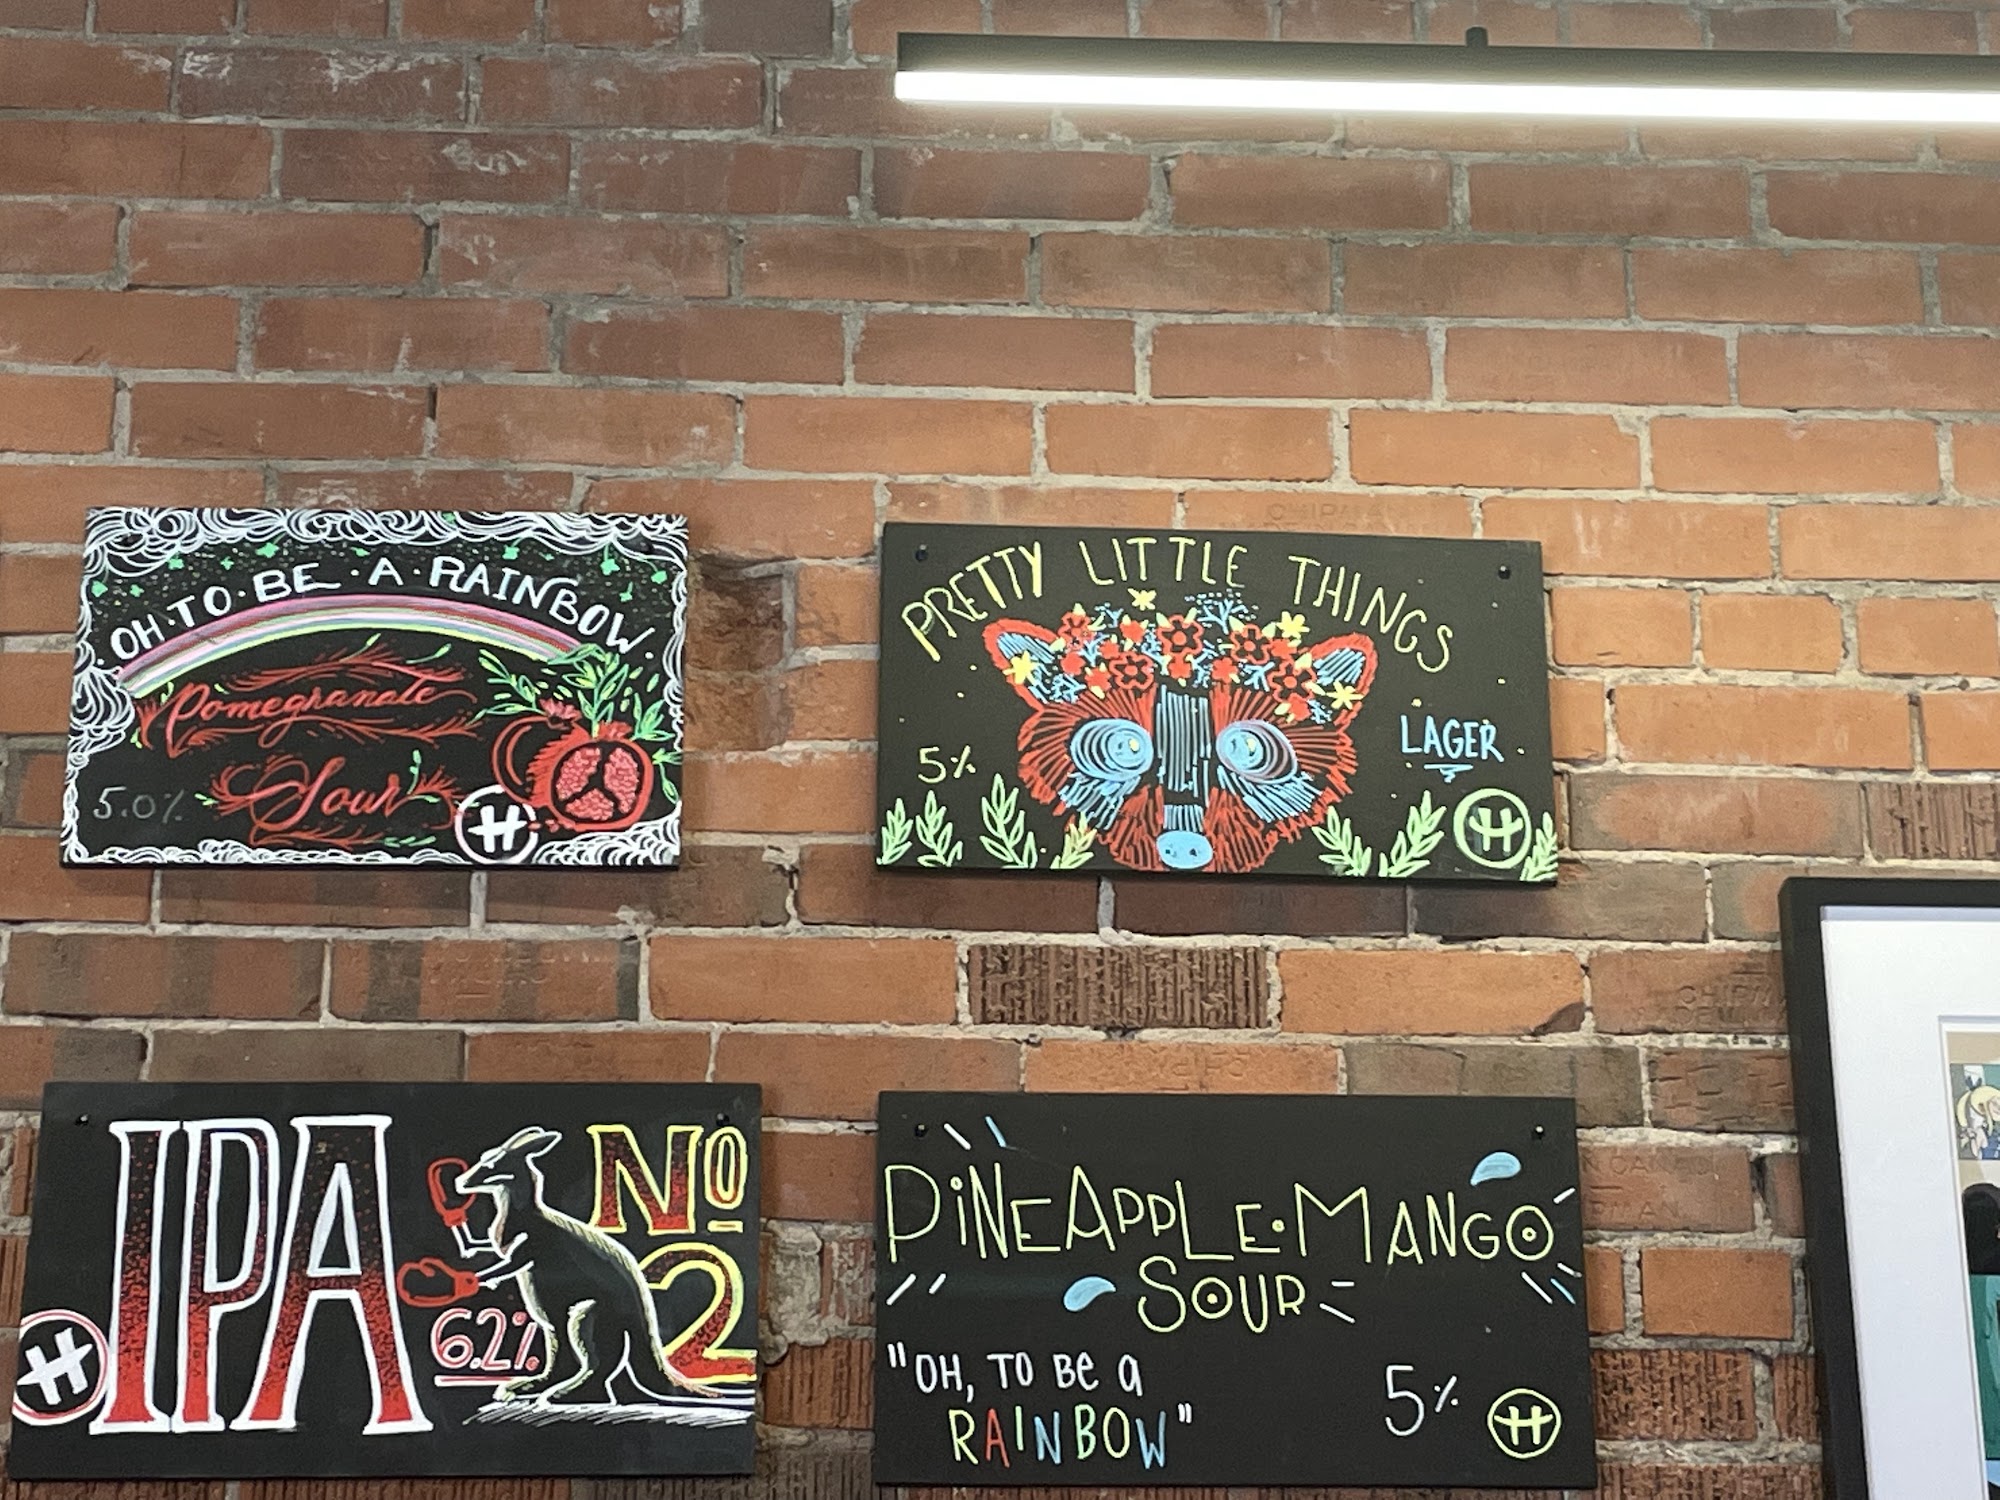 OH·TO·BE·A·RAINBOW.
Pomegranate
Sour
5.0%
H
PRETTY LITTLE THINGS
LAGER
5%
H
IPA
No
2
6.2%
H
PINEAPPLE·MANGO
SOUR
"OH, TO Be a
RAINBOW"
5%
H
CHIPMAN